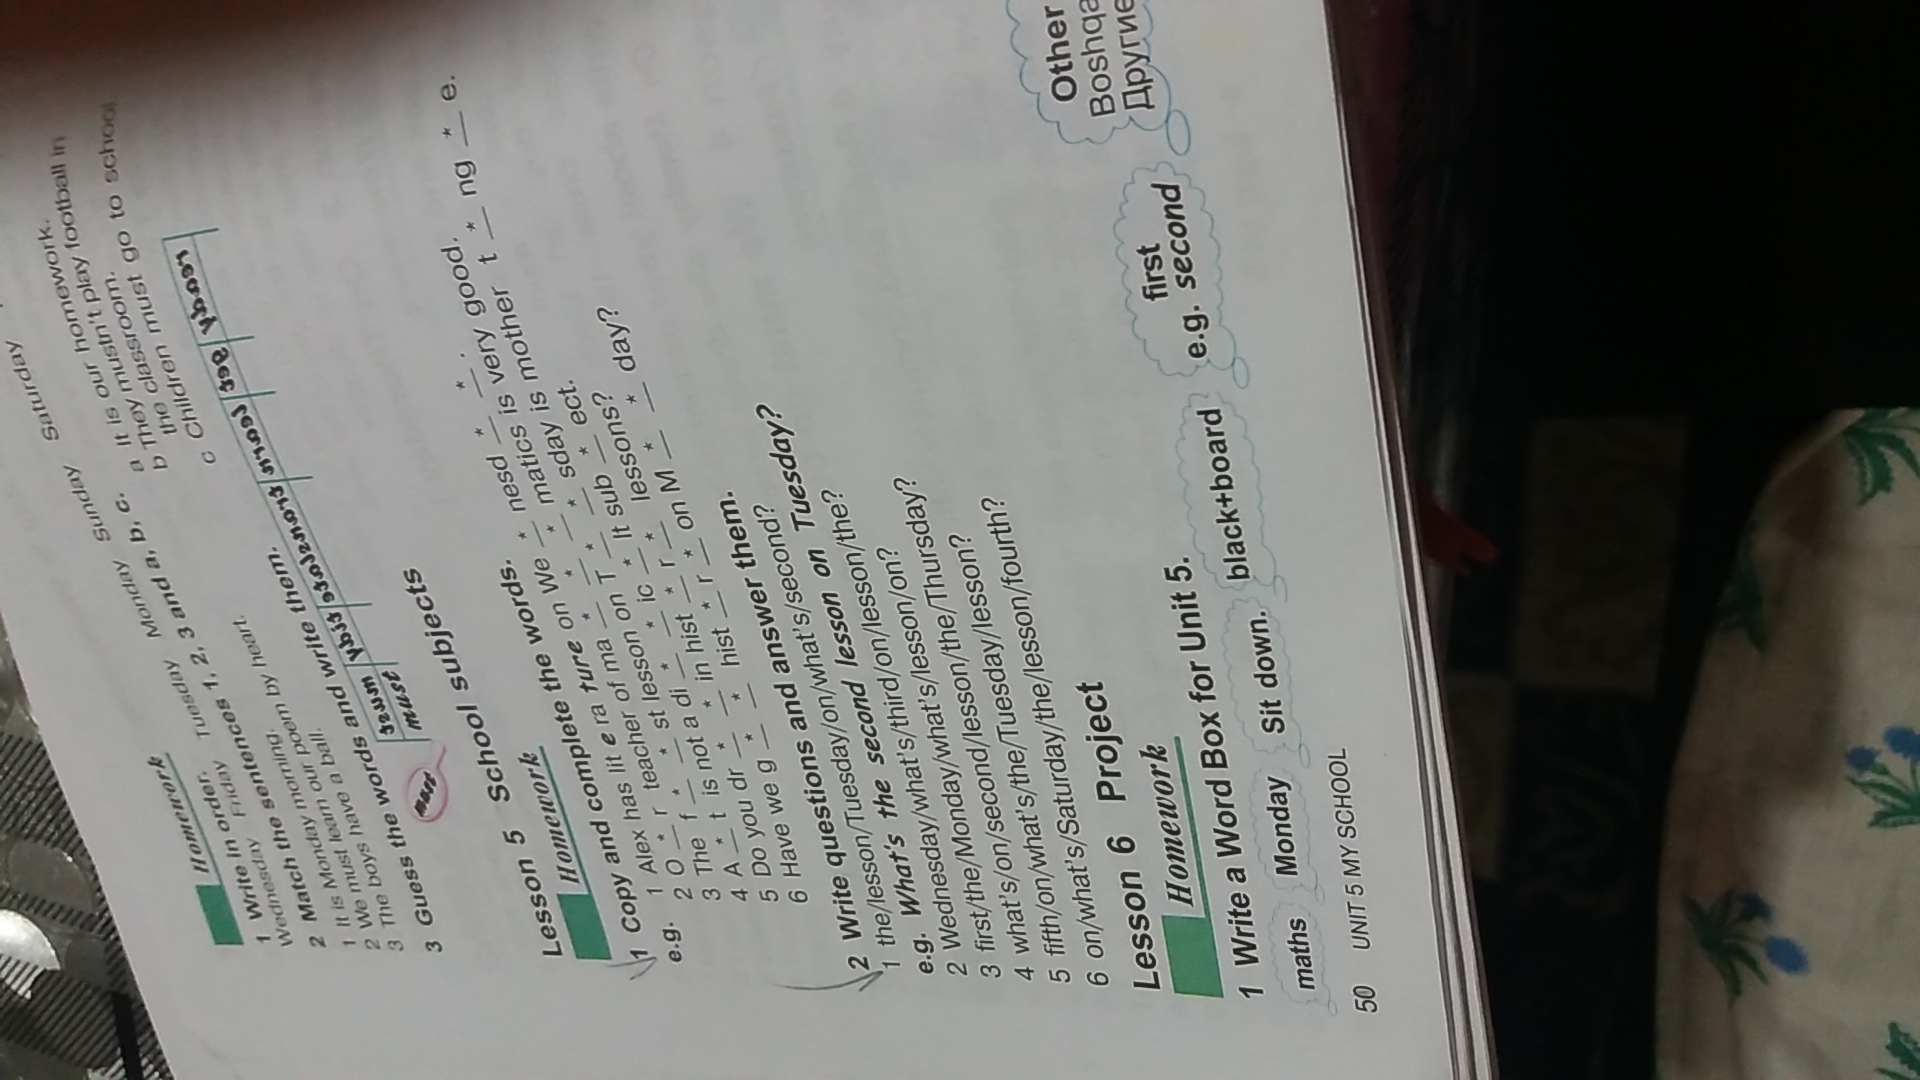 Saturday
Homework
1 Write in order. Monday Sunday
Wednesday Friday Tuesday
2 Match the sentences 1, 2, 3 and a, b, c.
Monday morning. a It is our homework.
1 It is must learn our poem by heart. b They mustn't play football in
2 We must have a ball. the classroom.
3 The boys c Children must go to school
3 Guess the words and write them.
must
must
Lesson 5 School subjects
Homework
1 Copy and complete the words.
e.g. 1 Alex has lit e ra ture on We _* nesd _* _.
2 O _* r teacher of ma _* _* matics is very good.
3 The f _* _* st lesson on T _* _* sday is mother t _* ng _* e.
4 A _* t is not a di _* _* ic _* lt sub _* ect.
5 Do you dr _* _* in hist _* r _* lessons?
6 Have we g _* _* hist _* r _* on M _* _* day?
2 Write questions and answer them.
1 the/lesson/Tuesday/on/what's/second?
e.g. What's the second lesson on Tuesday?
2 Wednesday/what's/third/on/lesson/the?
3 first/the/Monday/what's/lesson/on?
4 what's/on/second/lesson/the/Thursday?
5 fifth/on/what's/the/Tuesday/lesson?
6 on/what's/Saturday/the/lesson/fourth?
Lesson 6 Project
Homework
1 Write a Word Box for Unit 5.
maths Monday Sit down. black+board e.g. first second Other
Boshqa
Другие
50 UNIT 5 MY SCHOOL